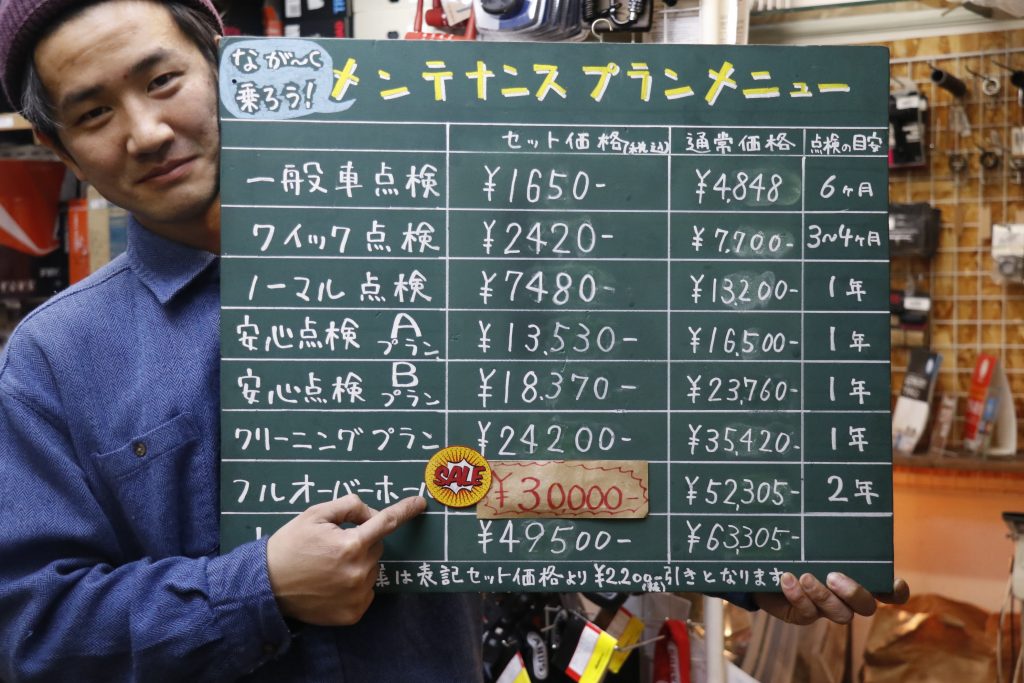 なが〜く
乗ろう!
メンテナンスプランメニュー
セット価格(税込) 通常価格 点検の目安
一般車点検 ¥1650- ¥4,848 6ヶ月
クイック点検 ¥2420- ¥7,700- 3〜4ヶ月
ノーマル点検 ¥7480- ¥13,200- 1年
安心点検 Aプラン ¥13,530- ¥16,500- 1年
安心点検 Bプラン ¥18,370- ¥23,760- 1年
クリーニングプラン ¥24200- ¥35,420- 1年
フルオーバーホール SALE ¥30000- ¥52,305- 2年
¥49500- ¥63,305-
は表記セット価格より¥2,200-引きとなります